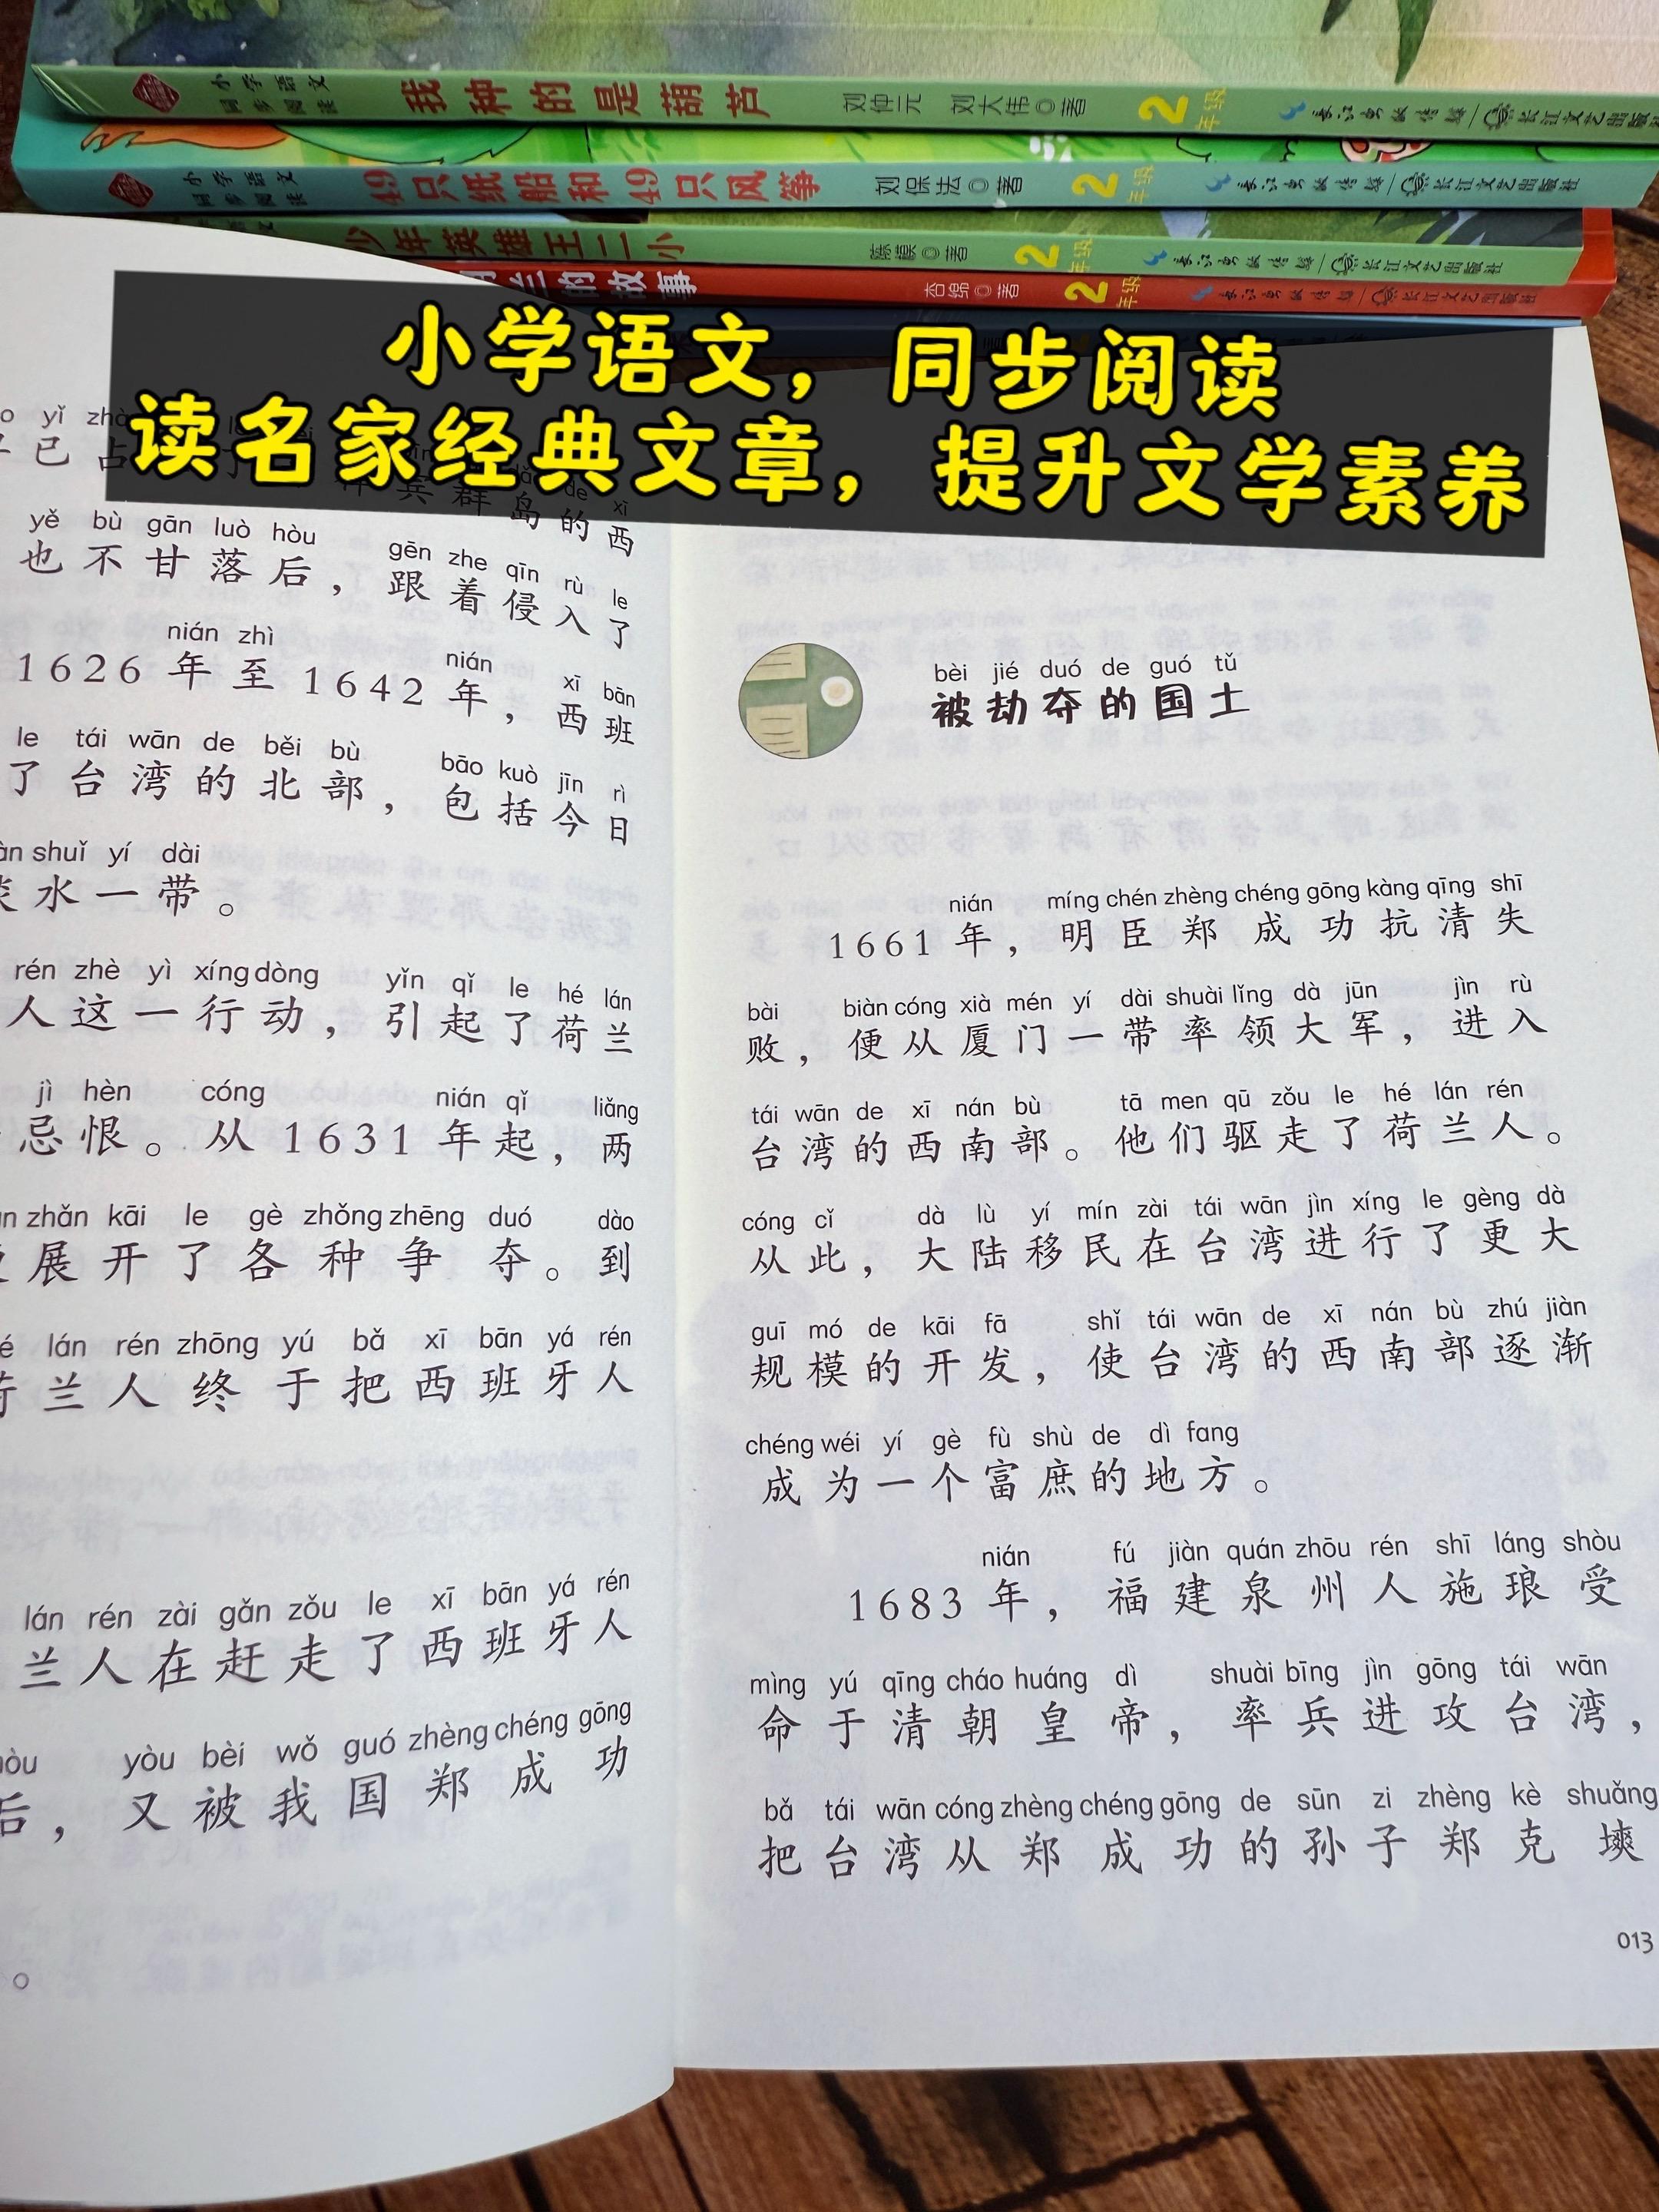 小学语文
同步阅读
我种的是葫芦
刘仲元 刘大伟◎著
2年级
长江文艺出版社
小学语文
同步阅读
49只纸船和49只风筝
刘保法◎著
2年级
长江文艺出版社
少年英雄王二小
陈模◎著
2年级
长江文艺出版社
的故事
杏绵◎著
2年级
长江文艺出版社
小学语文，同步阅读
读名家经典文章，提升文学素养
yǐ
已占
兵群岛的西
yě bù gān luò hòu gēn zhe qīn rù le
也不甘落后，跟着侵入了
nián zhì nián xī bān
1626年至1642年，西班
le tái wān de běi bù bāo kuò jīn rì
了台湾的北部，包括今日
shuǐ yí dài
水一带。
rén zhè yì xíng dòng yǐn qǐ le hé lán
人这一行动，引起了荷兰
jì hèn cóng nián qǐ liǎng
忌恨。从1631年起，两
zhǎn kāi le gè zhǒng zhēng duó dào
展开了各种争夺。到
lán rén zhōng yú bǎ xī bān yá rén
兰人终于把西班牙人
lán rén zài gǎn zǒu le xī bān yá rén
兰人在赶走了西班牙人
yòu bèi wǒ guó zhèng chéng gōng
后，又被我国郑成功
。
bèi jié duó de guó tǔ
被劫夺的国土
nián míng chén zhèng chéng gōng kàng qīng shī
1661年，明臣郑成功抗清失
bài biàn cóng xià mén yí dài shuài lǐng dà jūn jìn rù
败，便从厦门一带率领大军，进入
tái wān de xī nán bù tā men qū zǒu le hé lán rén
台湾的西南部。他们驱走了荷兰人。
cóng cǐ dà lù yí mín zài tái wān jìn xíng le gèng dà
从此，大陆移民在台湾进行了更大
guī mó de kāi fā shǐ tái wān de xī nán bù zhú jiàn
规模的开发，使台湾的西南部逐渐
chéng wéi yí gè fù shù de dì fang
成为一个富庶的地方。
nián fú jiàn quán zhōu rén shī láng shòu
1683年，福建泉州人施琅受
mìng yú qīng cháo huáng dì shuài bīng jìn gōng tái wān
命于清朝皇帝，率兵进攻台湾，
bǎ tái wān cóng zhèng chéng gōng de sūn zi zhèng kè shuǎng
把台湾从郑成功的孙子郑克塽
013